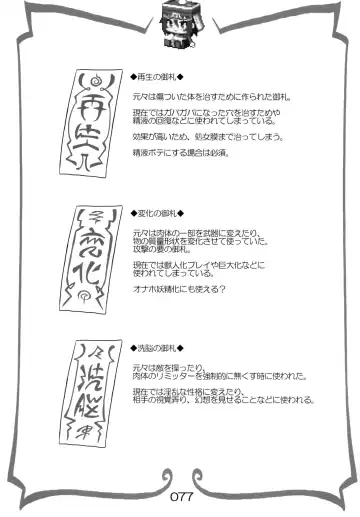 ◆再生の御札◆
元々は傷ついた体を治すために作られた御札。
現在ではガバガバになった穴を治すためや
精液の回復などに使われてしまっている。
効果が高いため、処女膜まで治ってしまう。
精液ボテにする場合は必須。
再生
◆変化の御札◆
元々は肉体の一部を武器に変えたり、
物の質量形状を変化させて使っていた。
攻撃の要の御札。
現在では獣人化プレイや巨大化などに
使われてしまっている。
オナホ妖精化にも使える？
変化
◆洗脳の御札◆
元々は敵を操ったり、
肉体のリミッターを強制的に無くす時に使われた。
現在では淫乱な性格に変えたり、
相手の視覚弄り、幻想を見せることなどに使われる。
洗脳
077